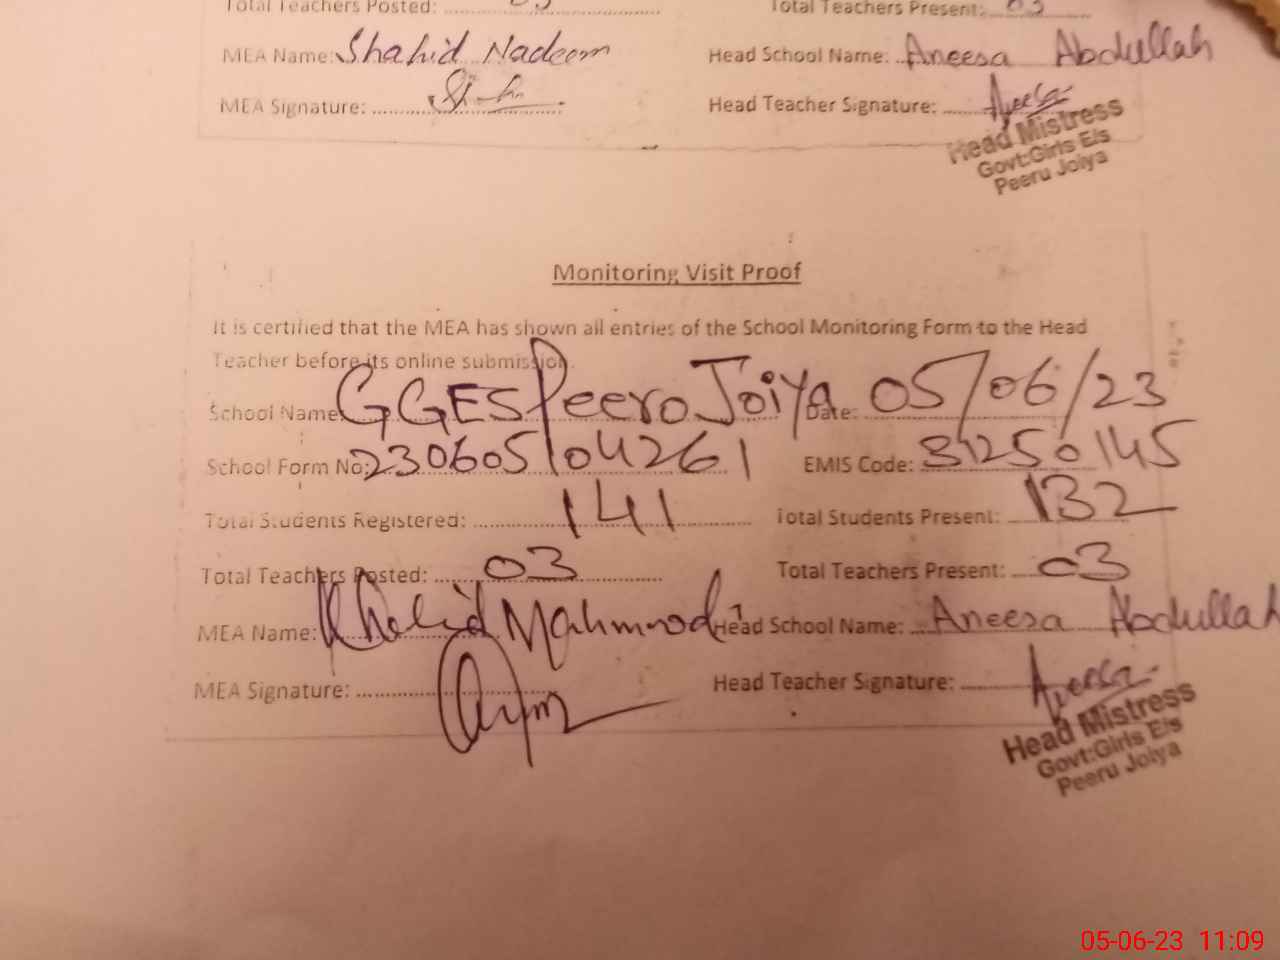 Total Teachers Posted: 03 Total Teachers Present: 03
MEA Name: Shahid Nadeem Head School Name: Aneesa Abdullah
MEA Signature: Head Teacher Signature: Aneesa
Head Mistress
Govt:Girls E/s
Peeru Joiya
Monitoring Visit Proof
It is certified that the MEA has shown all entries of the School Monitoring Form to the Head
Teacher before its online submission.
School Name: GGES Peero Joiya Date: 05/06/23
School Form No: 230605104261 EMIS Code: 31250145
Total Students Registered: 141 Total Students Present: 132
Total Teachers Posted: 03 Total Teachers Present: 03
MEA Name: Khalid Mahmood Head School Name: Aneesa Abdullah
MEA Signature: Head Teacher Signature: Aneesa
Head Mistress
Govt:Girls E/s
Peeru Joiya
05-06-23 11:09